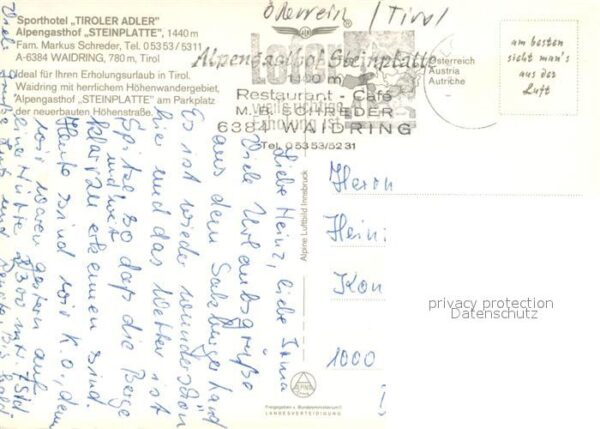 Sporthotel „TIROLER ADLER"
Alpengasthof „STEINPLATTE", 1440 m
Fam. Markus Schreder, Tel. 0 53 53 / 5311
A-6384 WAIDRING, 780 m, Tirol
Ideal für Ihren Erholungsurlaub in Tirol.
Waidring mit herrlichem Höhenwandergebiet,
Alpengasthof „STEINPLATTE" am Parkplatz
der neuerbauten Höhenstraße.
Österreich / Tirol
Alpengasthof Steinplatte
Restaurant - Café
M. B. SCHREDER
6384 WAIDRING
Tel. 0 53 53/52 31
LOTTO
Österreich
Austria
Autriche
am besten
sieht man's
aus der
Luft
Liebe Heinz, liebe Irma
Viele Urlaubsgrüße
aus dem Salzburger Land
Es ist wieder wunderschön
hier und das Wetter ist
Spitze so daß die Berge
klar zu erkennen sind.
Heute sind wir K.O., denn
wir waren gestern auf
Herrn
Hein
Kon
1000
Alpine Luftbild Innsbruck
Freigegeben v. Bundesministerium f.
LANDESVERTEIDIGUNG
privacy protection
Datenschutz